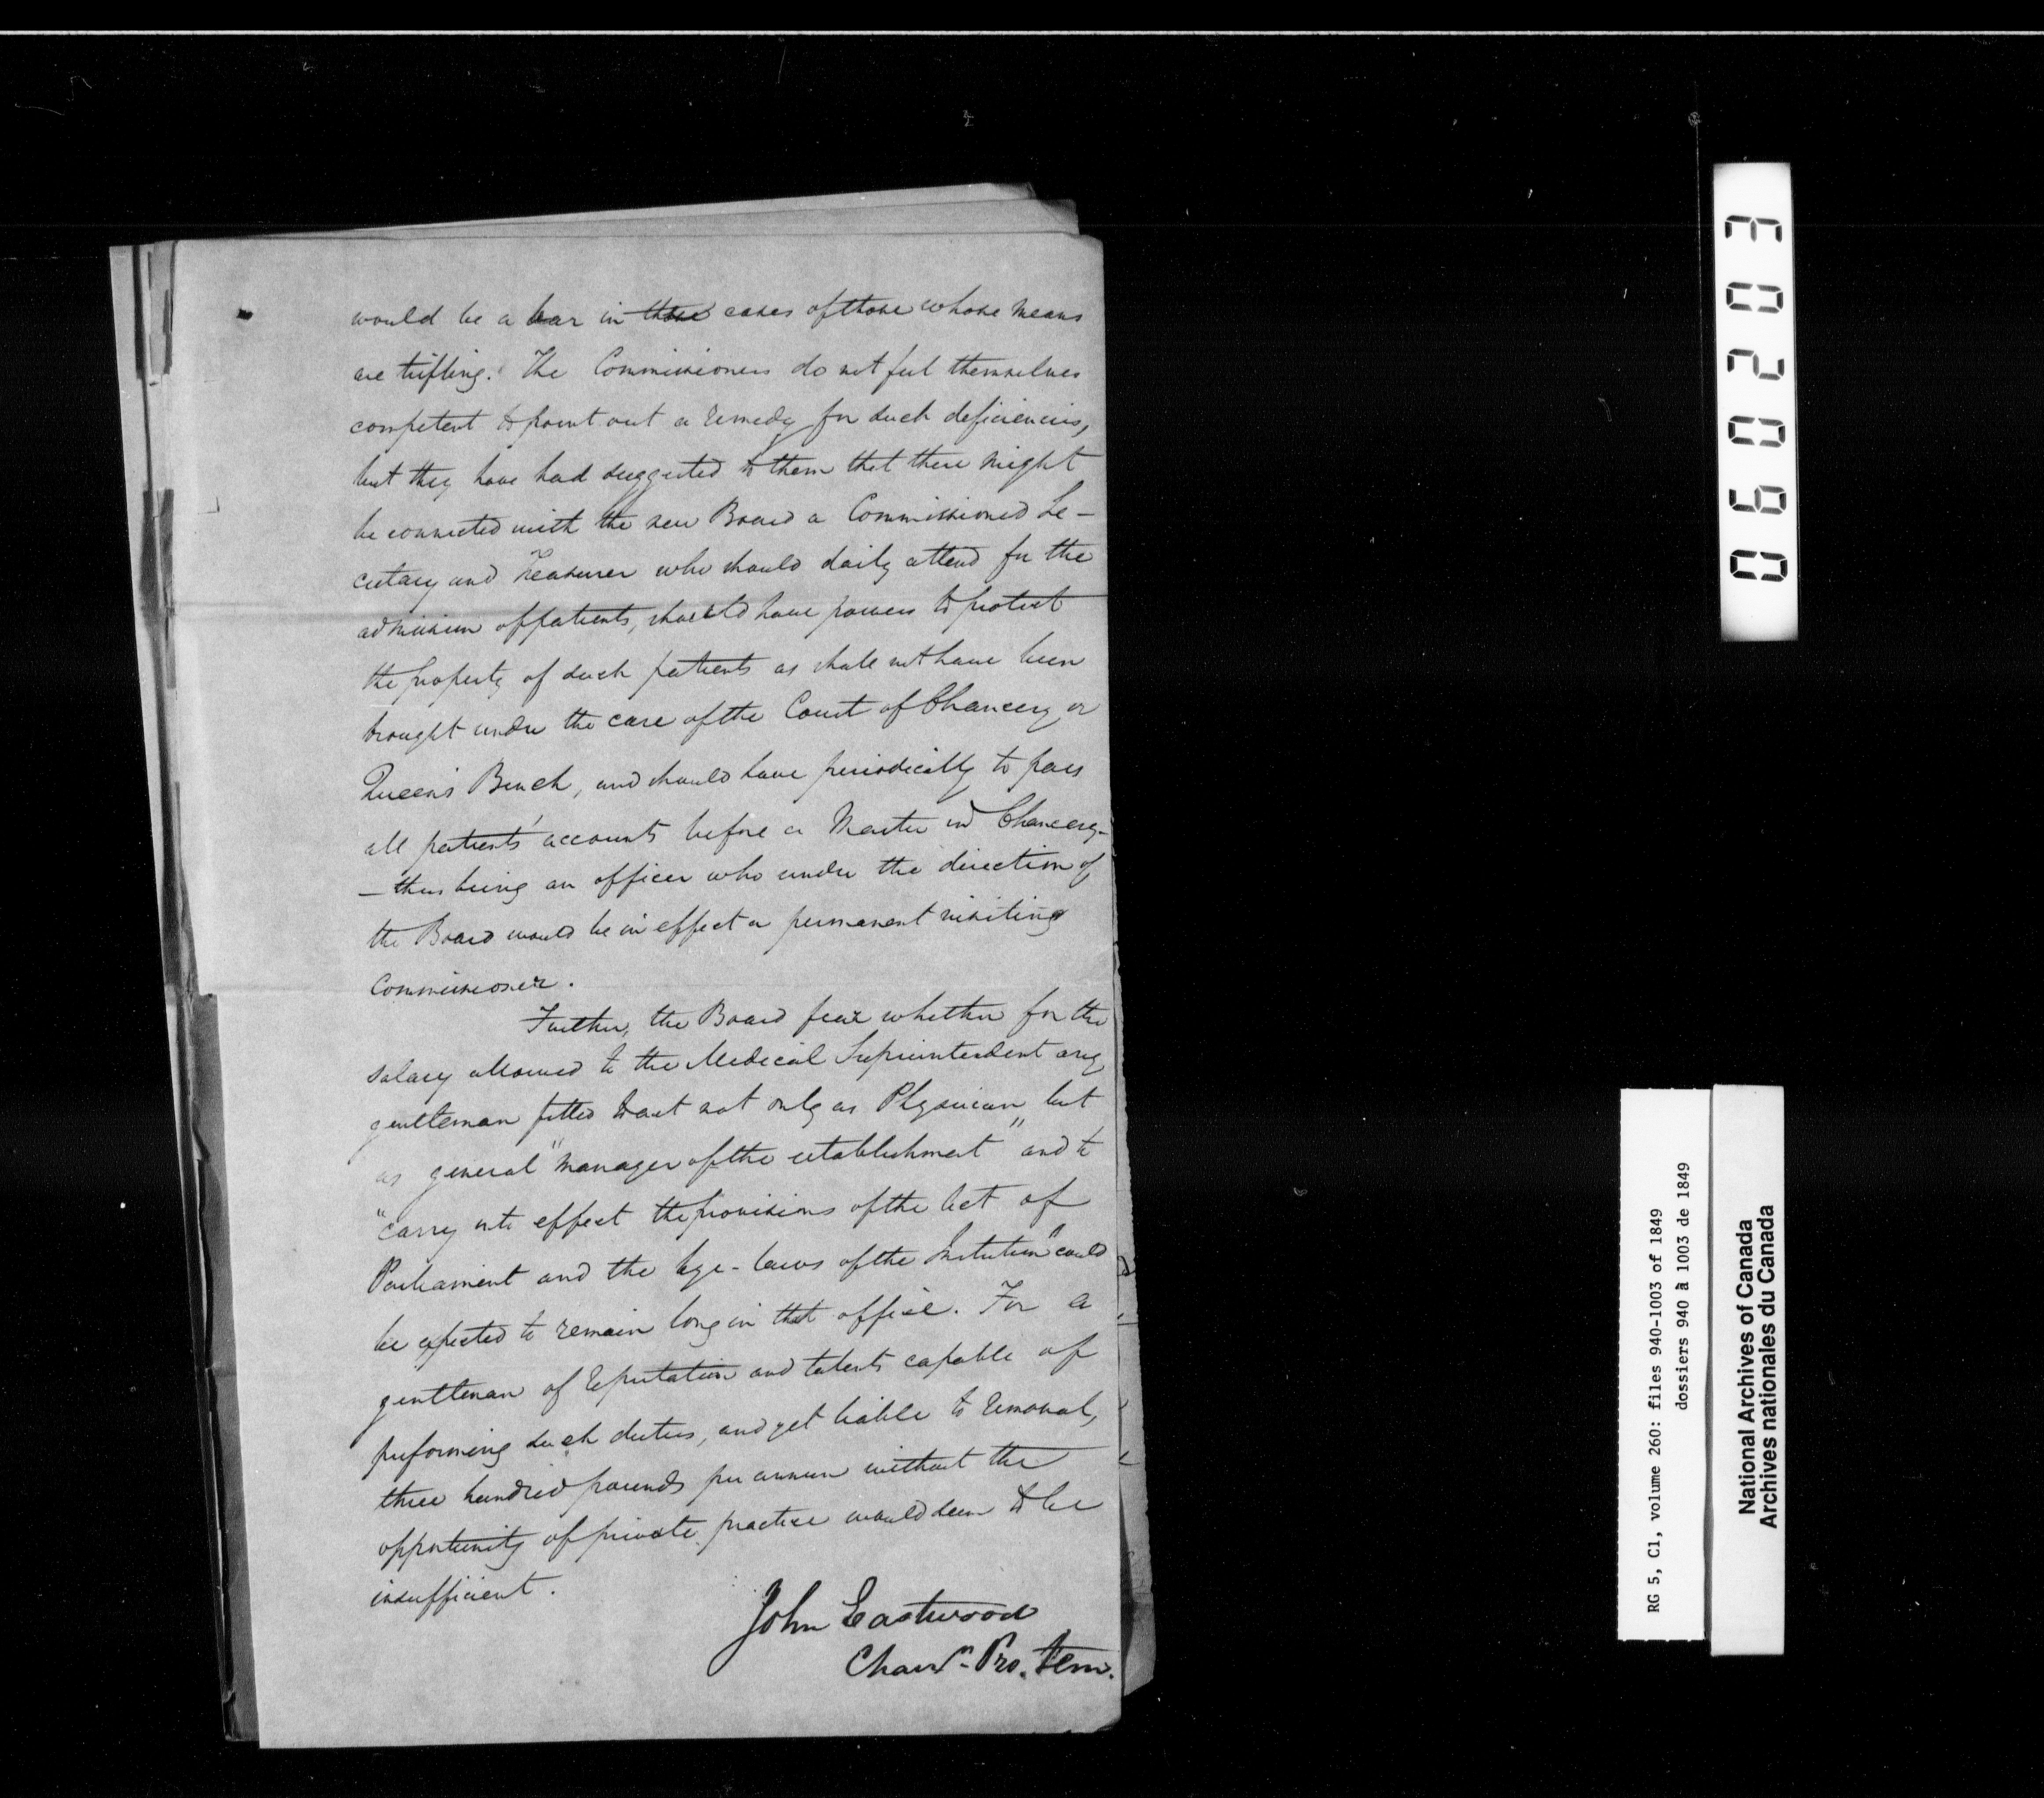 would be a bar in those cases of those whose means
are trifling. The Commissioners do not feel themselves
competent to point out a remedy for such deficiencies,
but they have had suggested to them that there might
be connected with the new Board a Commissioned Se-
cretary and Treasurer who should daily attend for the
admission of patients, should have powers to protect
the property of such patients as shall not have been
brought under the care of the Court of Chancery or
Queen's Bench, and should have periodically to pass
all patients' accounts before a Master in Chancery-
- thus being an officer who under the direction of
the Board would be in effect a permanent visiting
Commissioner.
Further, the Board fear whether for the
salary allowed to the Medical Superintendent any
gentleman fitted to act not only as Physician but
as general "manager of the establishment" and to
"carry into effect the provisions of the Act of
Parliament and the bye-laws of the Institution" could
be expected to remain long in that office. For a
gentleman of reputation and talents capable of
performing such duties, and yet liable to removal,
three hundred pounds per annum without the
opportunity of private practice would seem to be
insufficient.
John Eastwood
Chairn. Pro. Tem.
060203
RG 5, C1, volume 260: files 940-1003 of 1849
dossiers 940 à 1003 de 1849
National Archives of Canada
Archives nationales du Canada